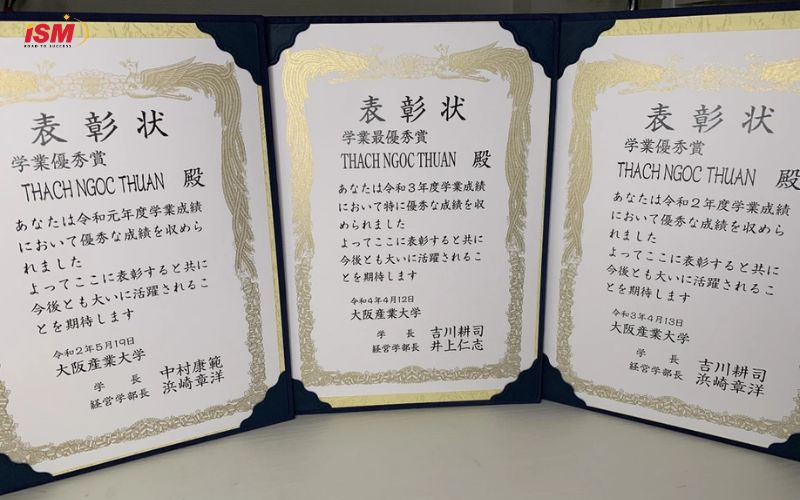 iSM
ROAD TO SUCCESS
表彰状
学業優秀賞
THACH NGOC THUAN 殿
あなたは令和元年度学業成績
において優秀な成績を収めら
れました
よってここに表彰すると共に
今後とも大いに活躍されるこ
とを期待します
令和2年5月19日
大阪産業大学
学長 中村康範
経営学部長 浜崎章洋
表彰状
学業最優秀賞
THACH NGOC THUAN 殿
あなたは令和3年度学業成績
において特に優秀な成績を収
められました
よってここに表彰すると共に
今後とも大いに活躍されるこ
とを期待します
令和4年4月12日
大阪産業大学
学長 吉川耕司
経営学部長 井上仁志
表彰状
学業優秀賞
THACH NGOC THUAN 殿
あなたは令和2年度学業成績
において優秀な成績を収めら
れました
よってここに表彰すると共に
今後とも大いに活躍されるこ
とを期待します
令和3年4月13日
大阪産業大学
学長 吉川耕司
経営学部長 浜崎章洋